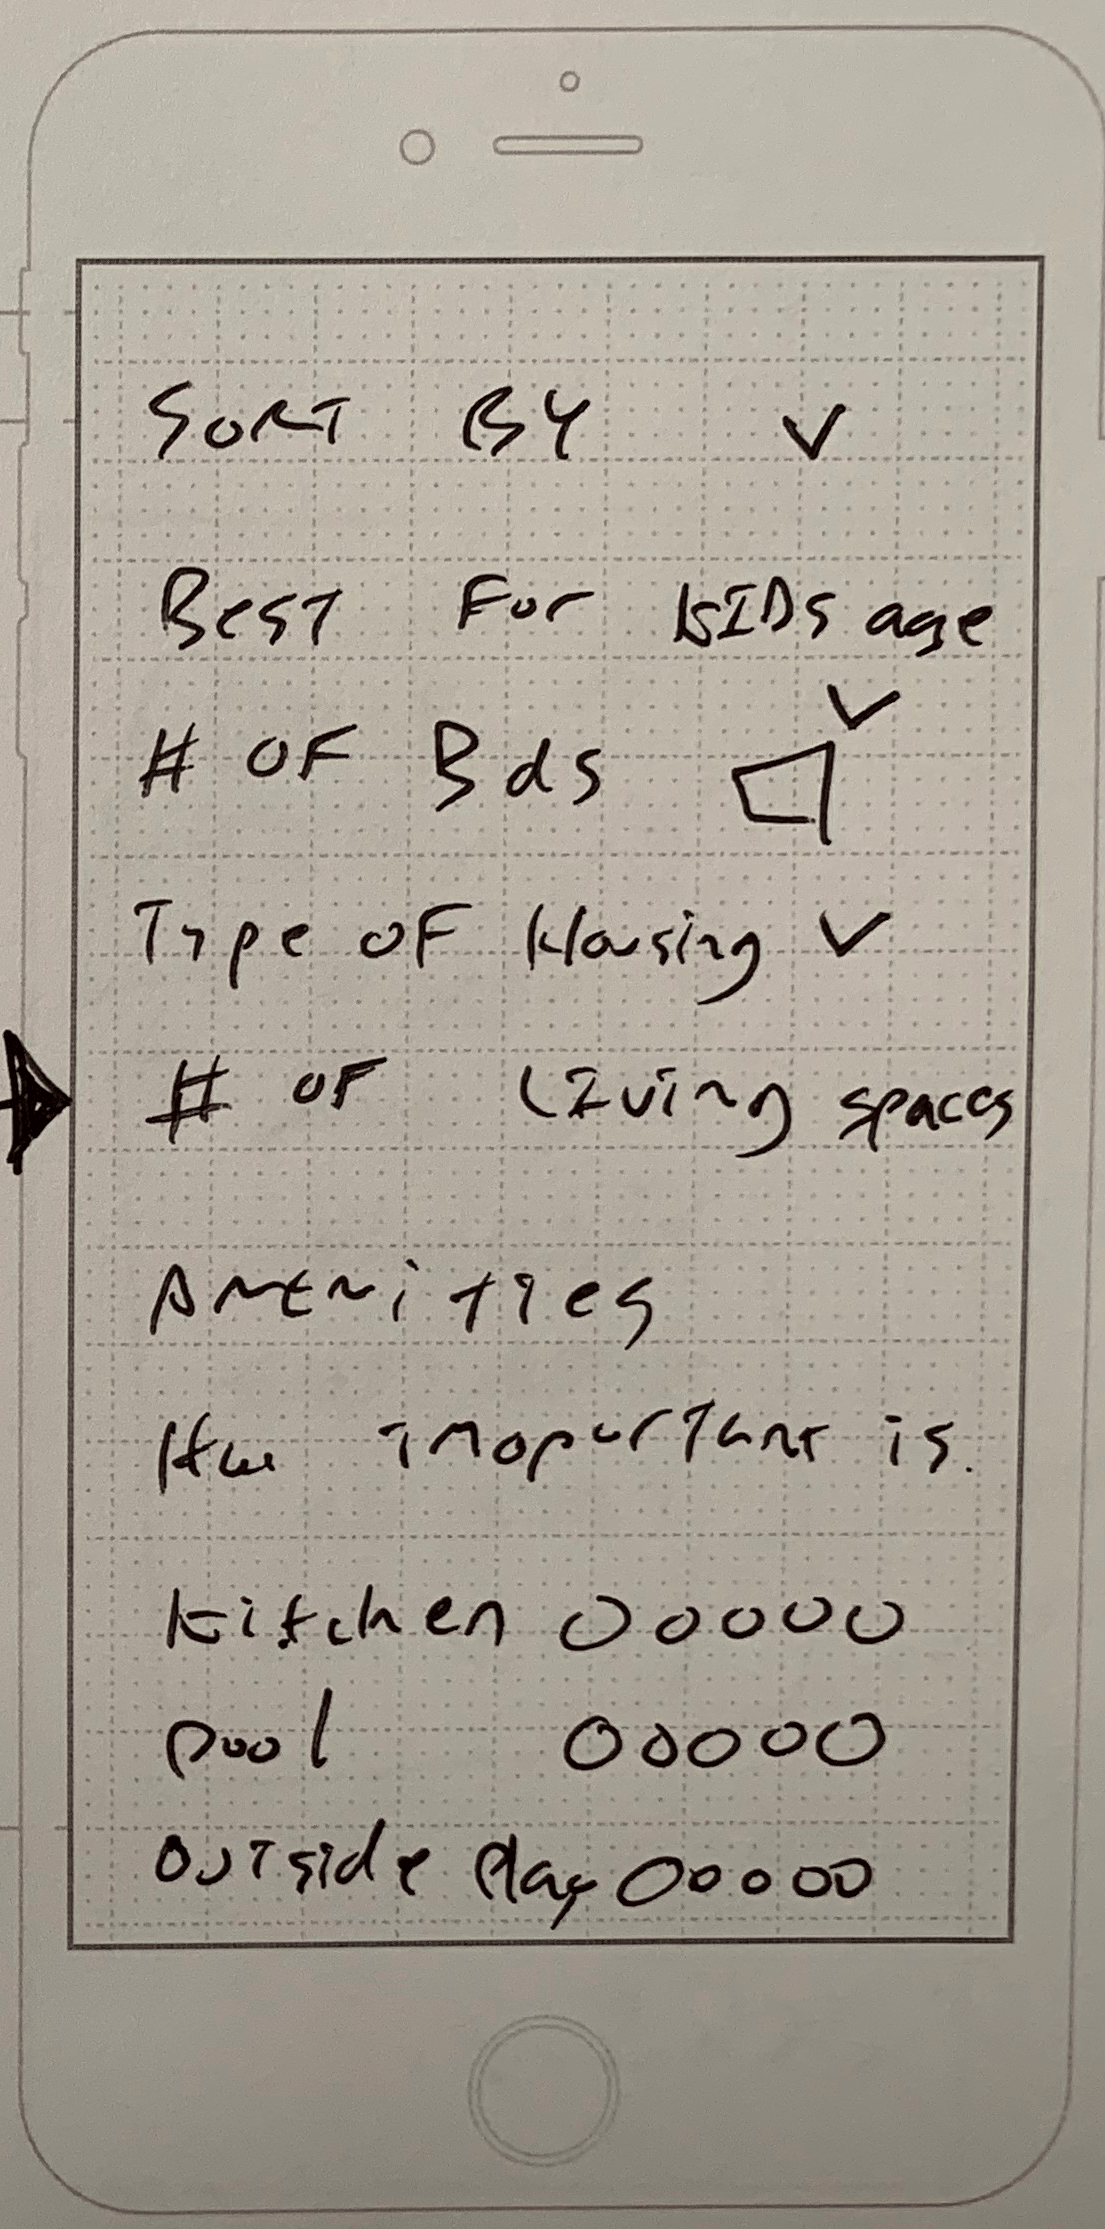 SORT BY ✓
Best For KIDS age
# OF Bds
Type OF Housing ✓
# OF LIVing spaces
Amenities
How imoportant is.
kitchen OOOOO
pool OOOOO
Outside Play OOOOO